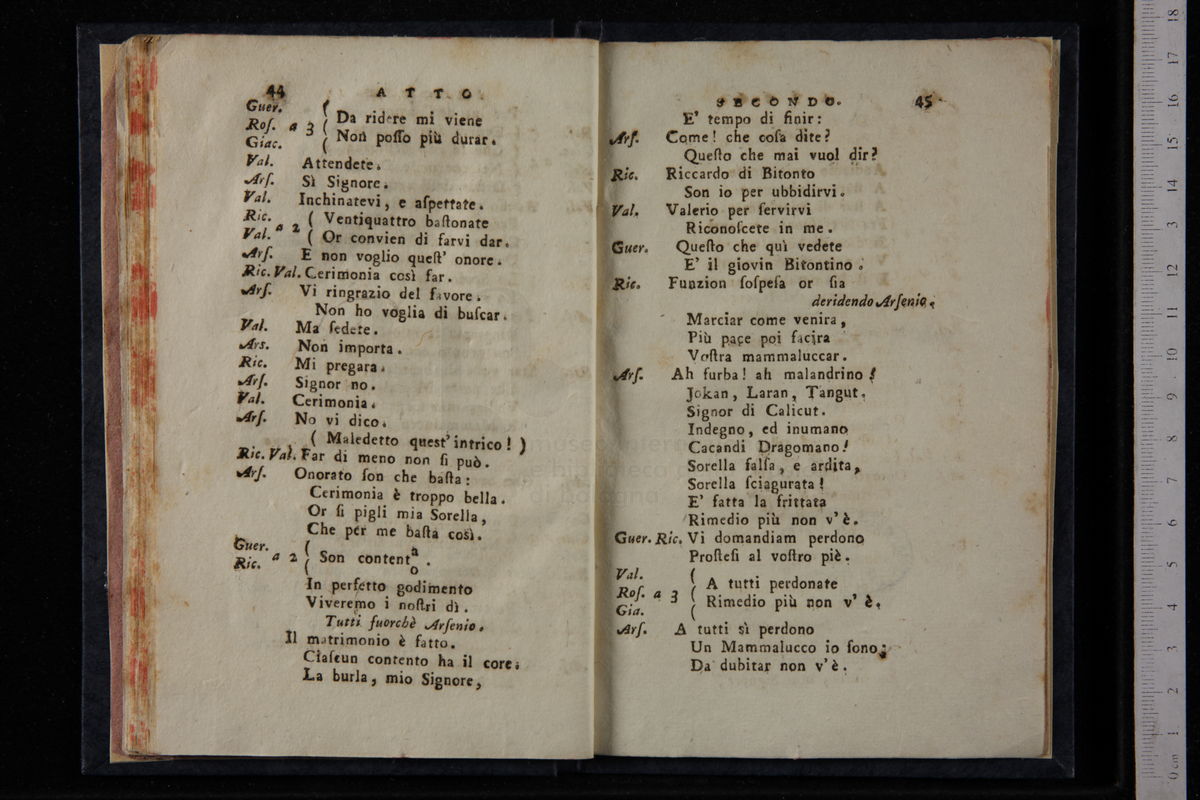 44 ATTO
Guer.
Roſ. a 3 ( Da ridere mi viene
Giac. ( Non poſſo più durar.
Val. Attendete.
Arſ. Sì Signore.
Val. Inchinatevi, e aſpettate.
Ric. a 2 ( Ventiquattro baſtonate
Val. ( Or convien di farvi dar.
Arſ. E non voglio queſt' onore.
Ric. Val. Cerimonia così far.
Arſ. Vi ringrazio del favore.
Non ho voglia di buſcar.
Val. Ma ſedete.
Ars. Non importa.
Ric. Mi pregara.
Arſ. Signor no.
Val. Cerimonia.
Arſ. No vi dico.
( Maledetto quest' intrico! )
Ric. Val. Far di meno non ſi può.
Arſ. Onorato ſon che baſta:
Cerimonia è troppo bella.
Or ſi pigli mia Sorella,
Che per me baſta così.
Guer. (
Ric. a 2 ( Son content a o .
In perfetto godimento
Viveremo i noſtri dì.
Tutti fuorchè Arſenio.
Il matrimonio è fatto.
Ciaſcun contento ha il core;
La burla, mio Signore,
SECONDO. 45
E' tempo di finir:
Arſ. Come! che coſa dite?
Queſto che mai vuol dir?
Ric. Riccardo di Bitonto
Son io per ubbidirvi.
Val. Valerio per ſervirvi
Riconoſcete in me.
Guer. Queſto che quì vedete
E' il giovin Bitontino.
Ric. Funzion ſoſpeſa or ſia
deridendo Arſenio.
Marciar come venira,
Più pace poi facira
Voſtra mammaluccar.
Arſ. Ah furba! ah malandrino!
Jokan, Laran, Tangut,
Signor di Calicut.
Indegno, ed inumano
Cacandi Dragomano!
Sorella falſa, e ardita,
Sorella ſciagurata!
E' fatta la frittata
Rimedio più non v'è.
Guer. Ric. Vi domandiam perdono
Proſteſi al voſtro piè.
Val. (
Roſ. a 3 ( A tutti perdonate
Gia. ( Rimedio più non v' è.
Arſ. A tutti sì perdono
Un Mammalucco io ſono;
Da dubitar non v'è.